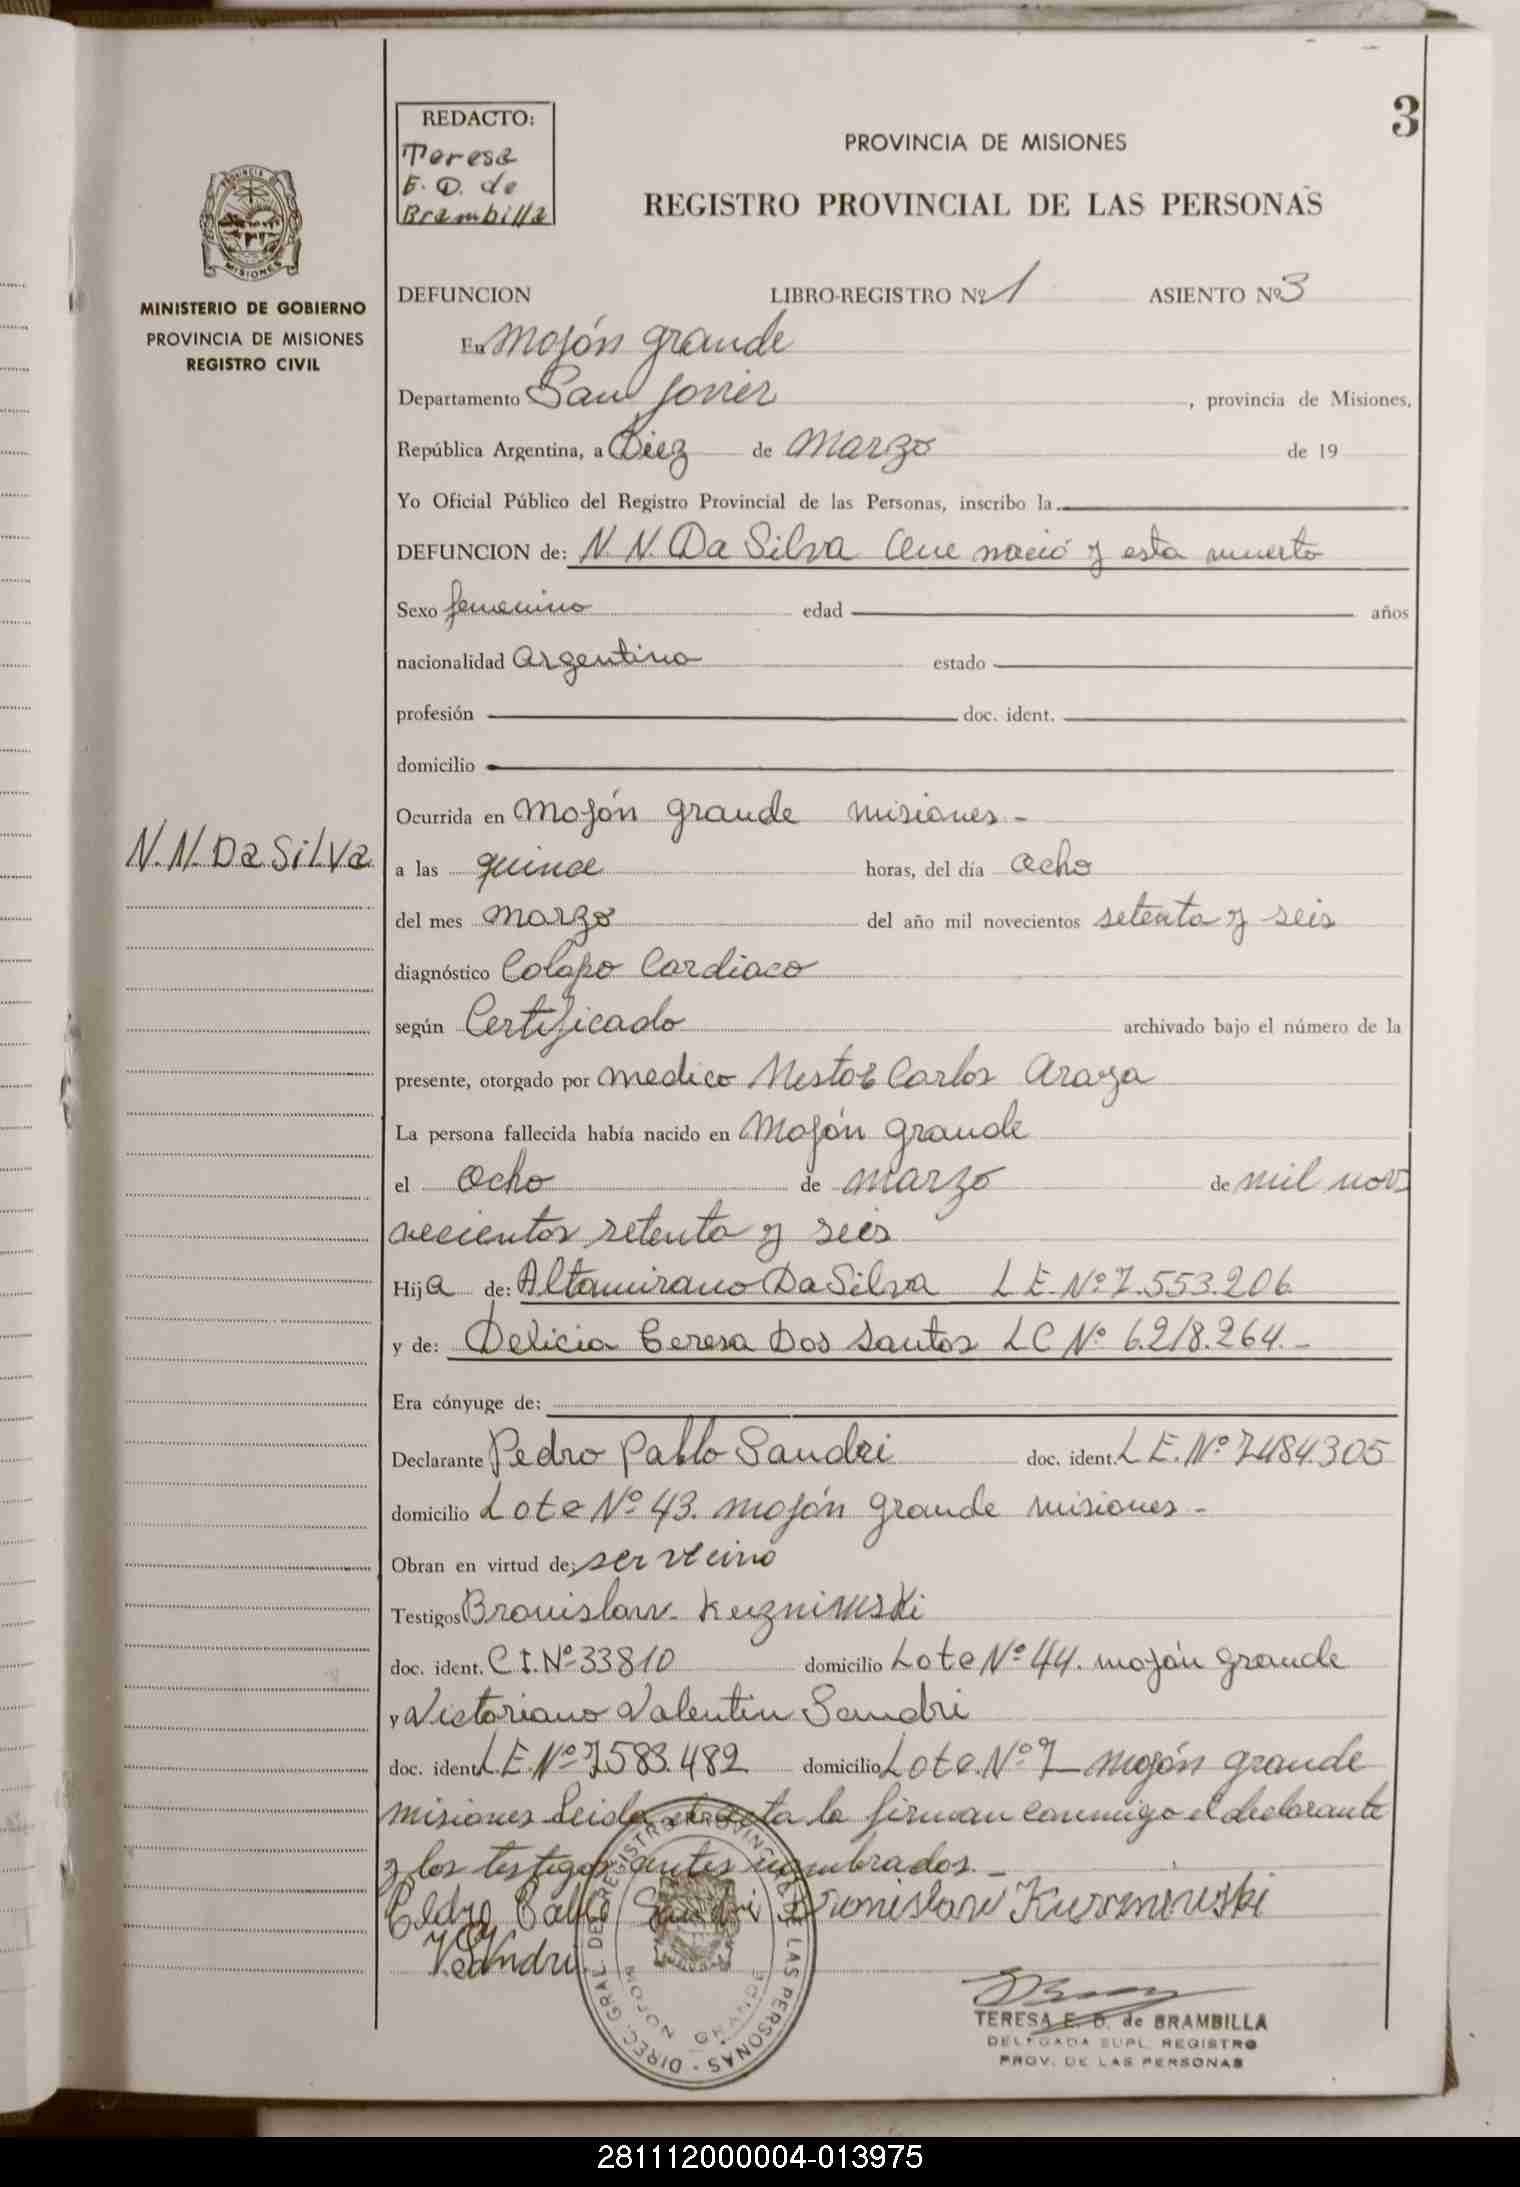 3
REDACTO:
Teresa
E. D. de
Brambilla
PROVINCIA DE MISIONES
REGISTRO PROVINCIAL DE LAS PERSONAS
PROVINCIA DE
MISIONES
MINISTERIO DE GOBIERNO
PROVINCIA DE MISIONES
REGISTRO CIVIL
DEFUNCION LIBRO-REGISTRO Nº 1 ASIENTO Nº 3
En Mojón grande
Departamento San Javier, provincia de Misiones,
República Argentina, a Diez de Marzo de 19
Yo Oficial Público del Registro Provincial de las Personas, inscribo la
DEFUNCION de: N. N. Da Silva Que nació y esta muerto
Sexo femenino edad años
nacionalidad Argentina estado
profesión doc. ident.
domicilio
Ocurrida en Mojón grande misiones -
N. N. Da Silva
a las quince horas, del día Ocho
del mes Marzo del año mil novecientos setenta y seis
diagnóstico Colapo Cardiaco
según Certificado archivado bajo el número de la
presente, otorgado por medico Nestor Carlos Araya
La persona fallecida había nacido en Mojón grande
el Ocho de marzo de mil nov
ecientos setenta y seis
Hija de: Altamirano Da Silva L E. Nº 7.553.206
y de: Delicia Teresa Dos Santos L C Nº 6.218.264.-
Era cónyuge de:
Declarante Pedro Pablo Sandri doc. ident. L E. Nº 7484.305
domicilio Lote Nº 43. mojón grande misiones -
Obran en virtud de: ser vecino
Testigos Bronislaw Kuzniruski
doc. ident. C I. Nº 33810 domicilio Lote Nº 44. mojón grande
y Victoriano Valentin Sandri
doc. ident. L.E. Nº 7.583.482 domicilio Lote. Nº 7 - mojón grande
misiones Leida el acta la firman conmigo el declarante
y los testigos antes nombrados. -
Pedro Pablo Sandri Bronislaw
V. Sandri
DIREC. GRAL. DE REGISTRO PROVINCIAL DE LAS PERSONAS
MOJON GRANDE
TERESA E. D. de BRAMBILLA
DELEGADA SUPL. REGISTRO
PROV. DE LAS PERSONAS
281112000004-013975